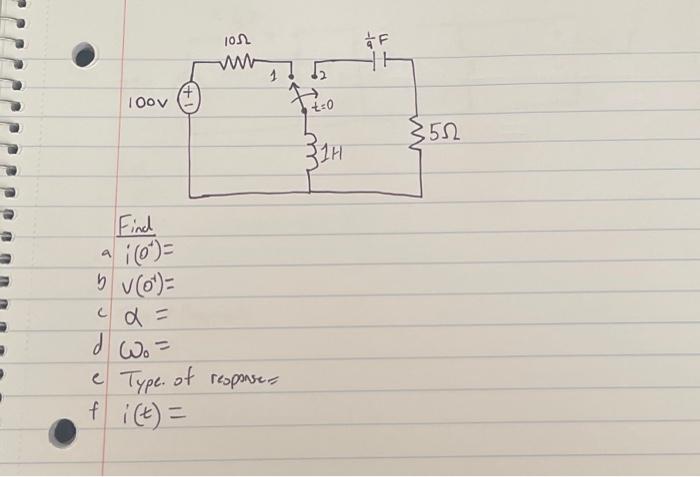 10Ω
1/9 F
1 2
100V + − t=0
5Ω
1H
Find
a i(0⁺)=
b v(0⁺)=
c α =
d ω₀ =
e Type. of response=
f i(t) =